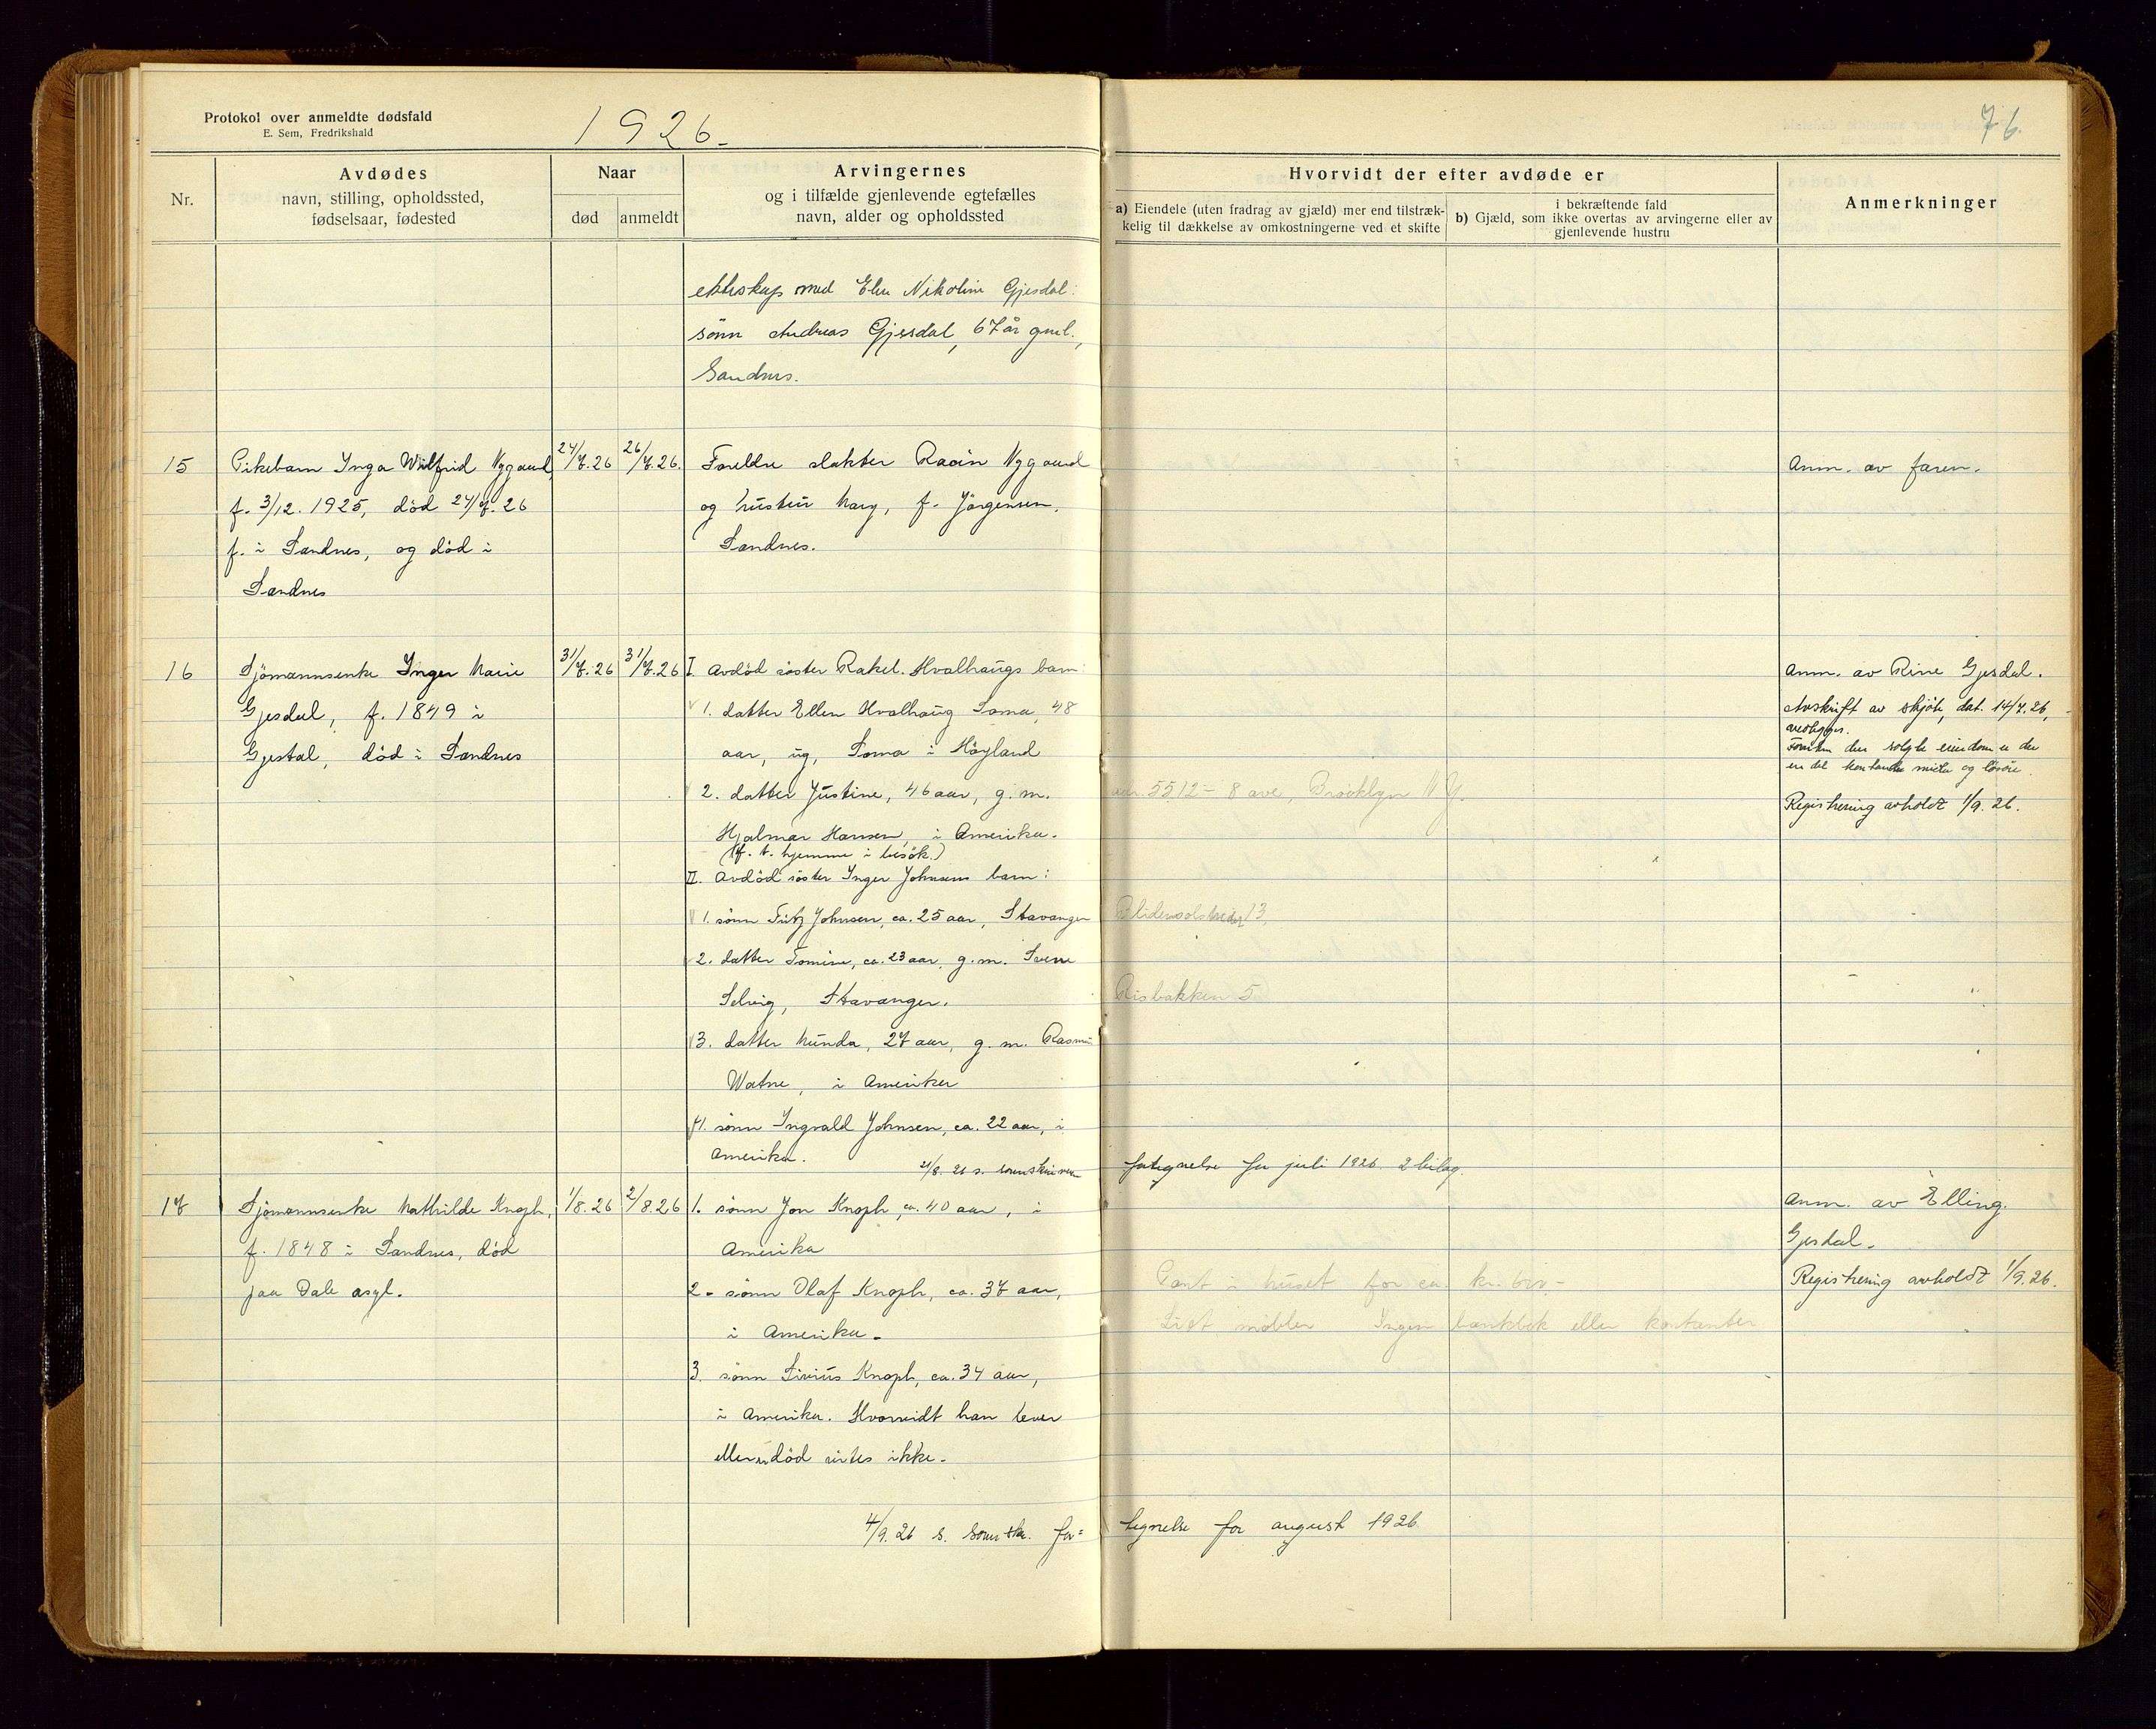 Protokol over anmeldte dødsfald
E. Sem, Fredrikshald
1926.
76.
Nr.
Avdødes
navn, stilling, opholdssted,
fødselsaar, fødested
Naar
død
anmeldt
Arvingernes
og i tilfælde gjenlevende egtefælles
navn, alder og opholdssted
Hvorvidt der efter avdøde er
a) Eiendele (uten fradrag av gjæld) mer end tilstræk-
kelig til dækkelse av omkostningerne ved et skifte
i bekræftende fald
b) Gjæld, som ikke overtas av arvingerne eller av
gjenlevende hustru
Anmerkninger
ekteskap med Nikoline Gjesdal:
sönn Andreas Gjesdal, 67 år gml.,
Sandnes.
15
Pikebarn Inga Wilfrid Nygaard,
f. 3/12. 1925, död 24/7. 26
f. i Sandnes, og död i
Sandnes
24/7. 26
26/7. 26.
Foreldre slakter Nygaard
og hustru Mary, f. Jörgensen,
Sandnes.
Anm. av faren.
16
Sjömannsenke Inger Marie
Gjesdal, f. 1849 i
Gjestal, död i Sandnes
31/7. 26
31/7. 26
I. Avdöd söster Rakel Hvalhaugs barn:
1. datter Ellen Hvalhaug Soma, 48
aar, ug, Soma i Höyland
2. datter Justine, 46 aar, g. m.
Hjalmar Hansen, i Amerika.
(f. t. hjemme i besök.)
II. Avdöd söster Inger Johnsens barn:
1. sönn Fritz Johnsen, ca. 25 aar, Stavanger
2. datter Tomine, ca. 23 aar, g. m. Sverre
Selvig, Stavanger.
3. datter Munda, 27 aar, g. m.
Watne, i Amerika
4. sönn Ingvald Johnsen, ca. 22 aar, i
Amerika.
5512 - 8 ave, Brooklyn N. Y.
13
Risbakken 5
Anm. av Rine Gjesdal.
Avskrift av skjöte, dat. 14/7. 26,
vedlegges.
Foruten den solgte eiendom er der
en del kontante midler og lösöre.
Registrering avholdt 1/9. 26.
2/8. 26 s. sorenskriveren
fortegnelse for juli 1926. 2 bilag.
17
Sjömannsenke Mathilde Knoph,
f. 1848 i Sandnes, död
paa Dale asyl.
1/8. 26
2/8. 26
1. sönn Jon Knoph, ca. 40 aar, i
Amerika
2. sönn Olaf Knoph, ca. 37 aar,
i Amerika.
3. sönn Sirius Knoph, ca. 34 aar,
i Amerika. Hvorvidt han lever
eller er död vites ikke.
Pant i huset for ca. kr.
Litt möbler Ingen bankbok eller kontanter
Anm. av Elling
Gjesdal.
Registrering avholdt 1/9. 26.
4/9. 26 s. sorenskr. for=
tegnelse for august 1926